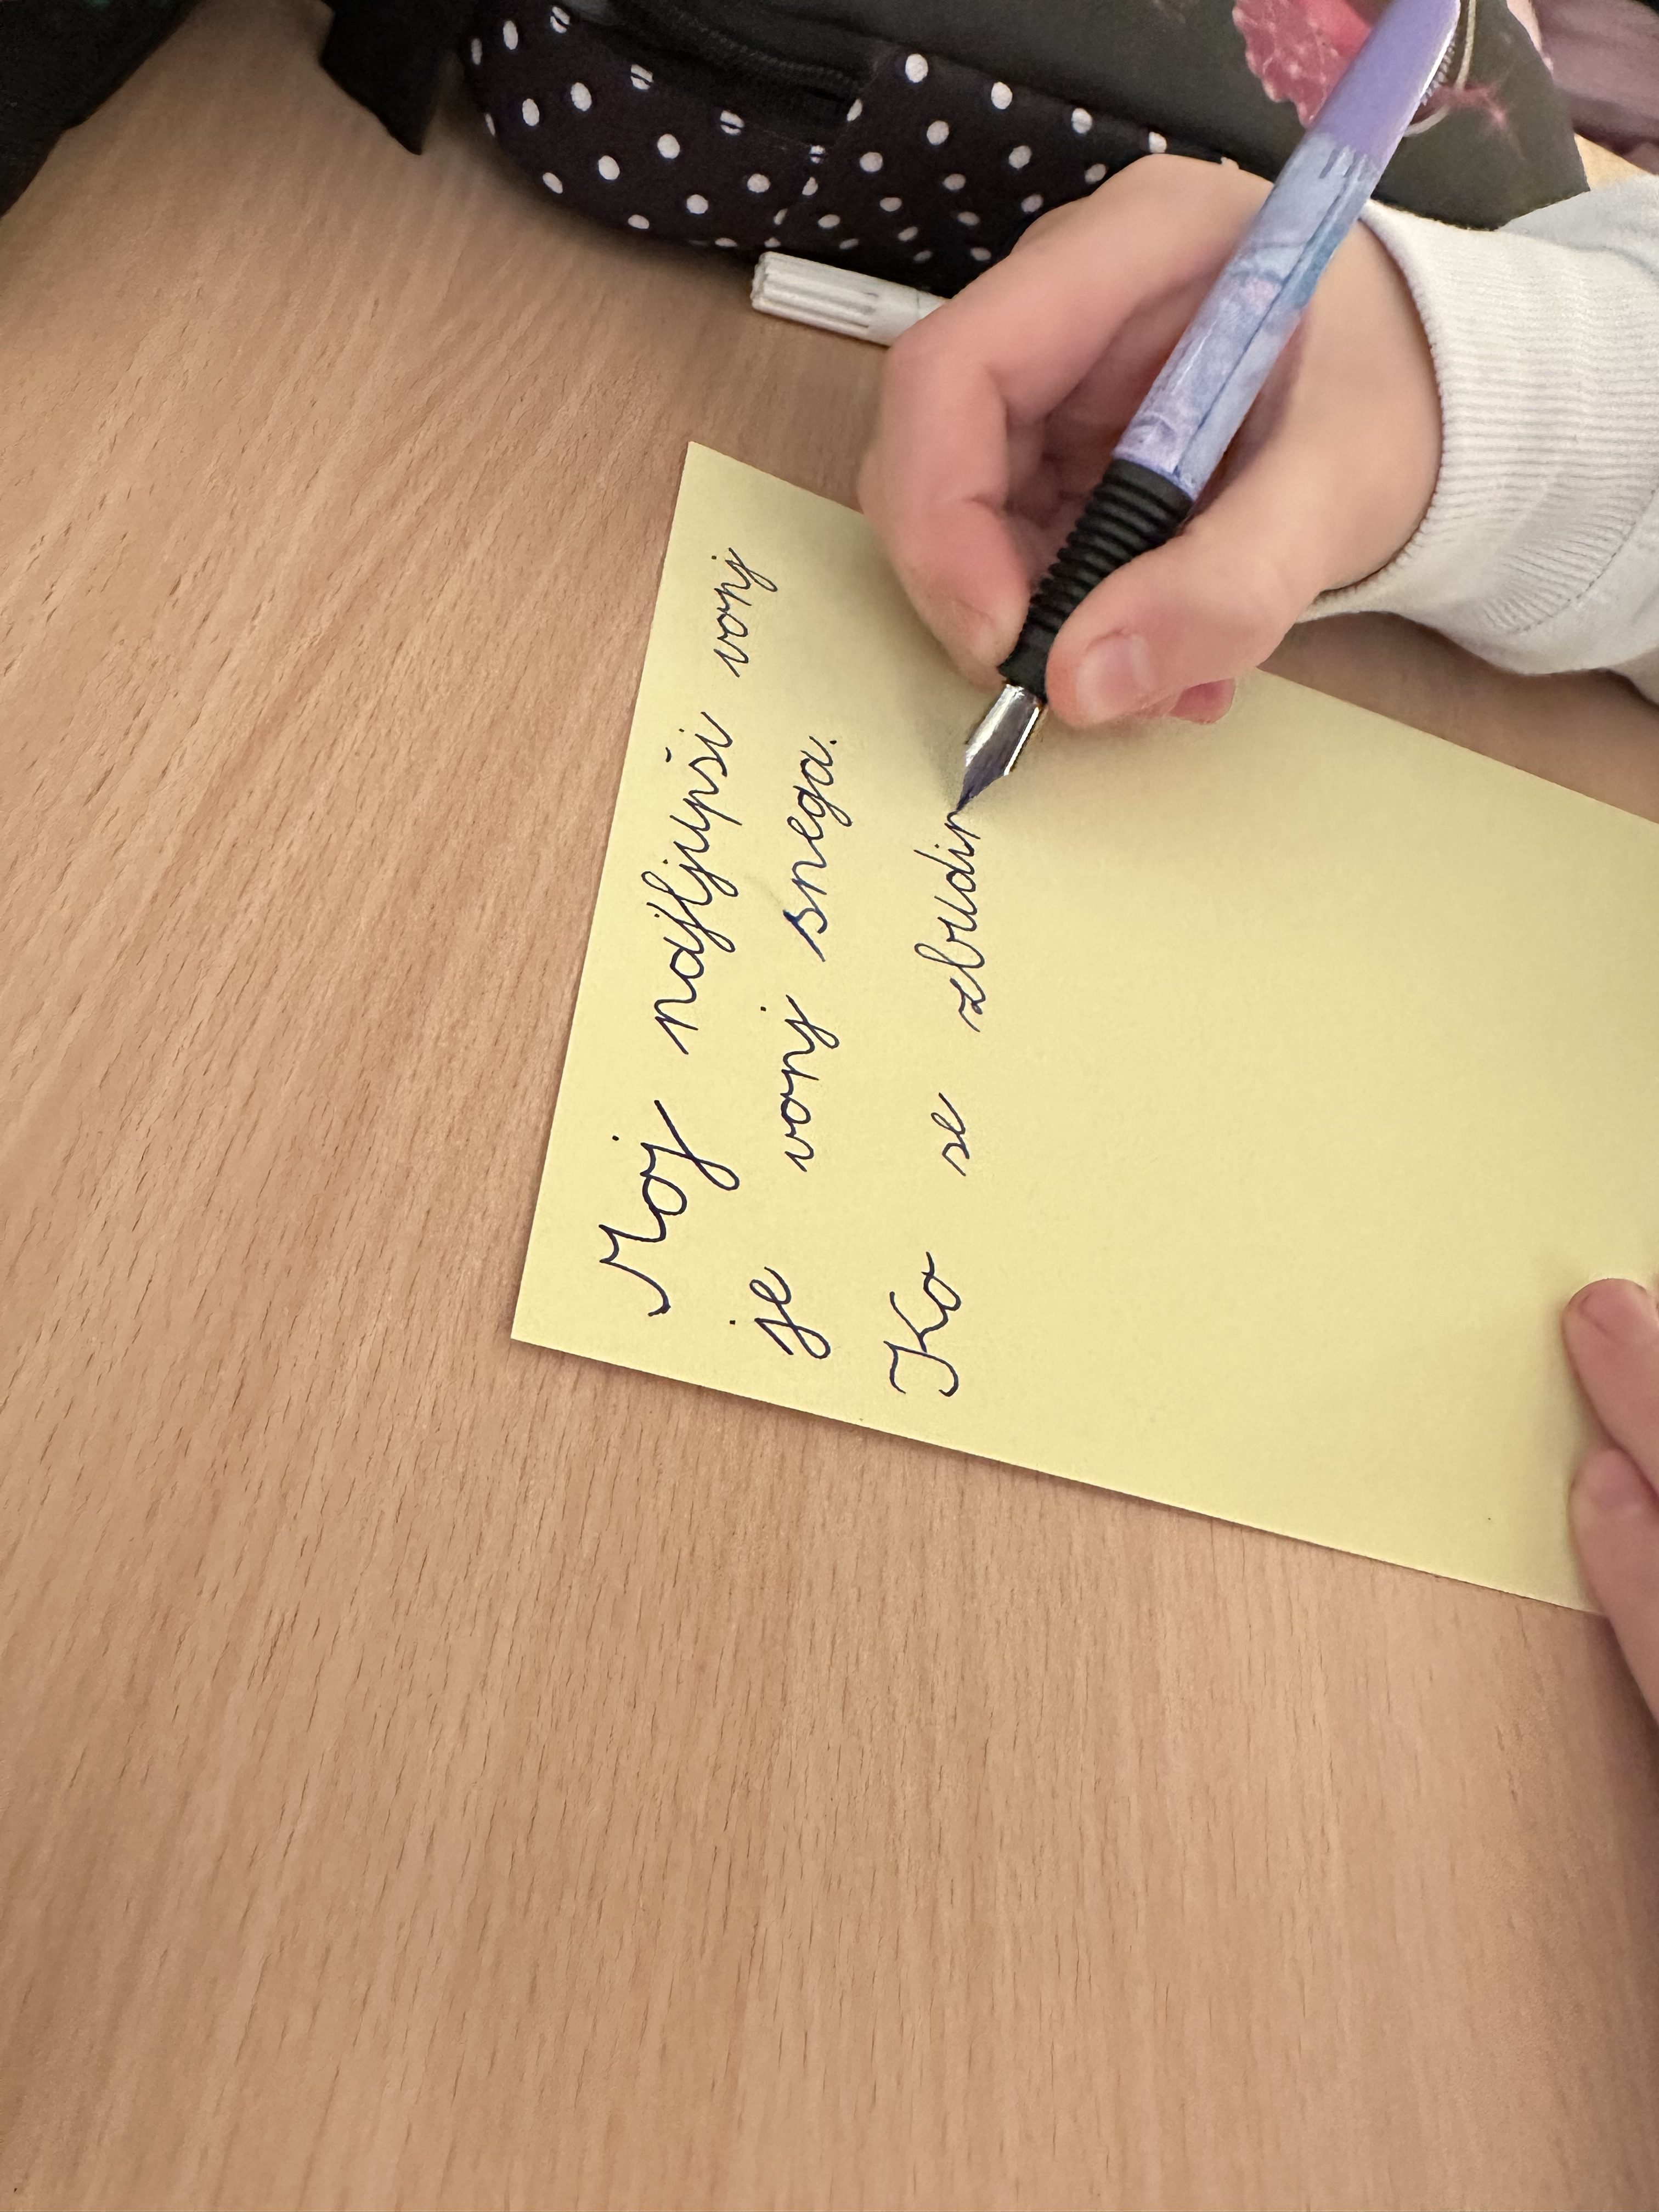 Moj najljupši vonj
je vonj snega.
Ko se zbudim